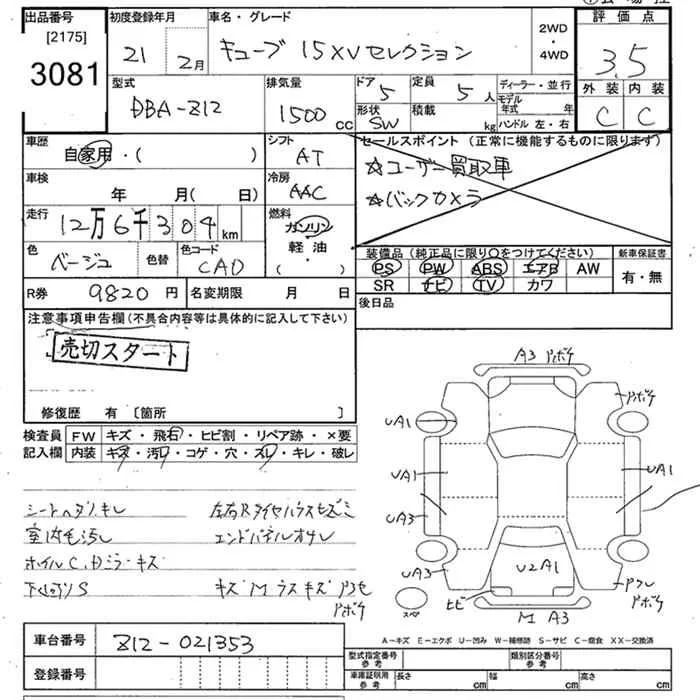 出品番号 初度登録年月 車名・グレード 2WD・4WD 評価点
[2175]
3081 21 2月 キューブ 15XVセレクション 3.5
型式 排気量 ドア 定員 ディーラー・並行 外装 内装
DBA-Z12 1500cc 5 5人 モデル年式 年 C C
形状 積載 ハンドル 左・右
SW kg
車歴 シフト セールスポイント (正常に機能するものに限ります)
自家用・( ) AT ☆ユーザー買取車
車検 冷房 ☆バックカメラ
年 月(日) AAC
走行 燃料
12万6千304km ガソリン
色 色替 色コード 軽油
ベージュ CAD (・)
装備品 (純正品に限り○をつけてください) 新車保証書
PS PW ABS エアB AW 有・無
SR ナビ TV カワ
R券 9820円 名変期限 月 日 後日品
注意事項申告欄(不具合内容等は具体的に記入して下さい)
売切スタート
修復歴 有 〔箇所 〕
検査員 FW キズ・飛石・ヒビ割・リペア跡・×要
記入欄 内装 キズ・汚レ・コゲ・穴・スレ・キレ・破レ
シートヘタリ、キレ
室内毛汚レ
エンドパネルオサレ
ホイルC,Dミラーキズ
下廻りS
A3
UA1
UA1 UA1
UA3
UA3
U2A1
ヒビ M A3
スペ
A-キズ E-エクボ U-凹み W-補修跡 S-サビ C-腐食 XX-交換済
車台番号 Z12-021353
登録番号
型式指定番号 参考 類別区分番号 参考
車庫証明用 参考 長さ cm 幅 cm 高さ cm